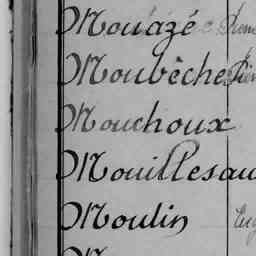 Mouazé
Moubêche
Mouchoux
Mouillesau
Moulin